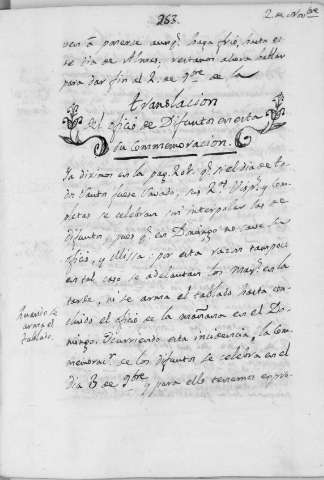 263.
2. de Nov.bre
ven á ponerse aunq.e haga frio, hasta es
se dia de Almas, restanos ahora hablar
para dar fin al 2. de 9bre de la
Translacion
del oficio de Difuntos en esta
su Commemoracion.
Ya diximos en la pag. q.e si el dia de to-
dos Santos fuese Sabado, sus 2.as Visp.s y Com-
pletas se celebran sin interpolar las de
Difuntos, pues q.e en Domingo no cave su
oficio, y Missa: por esta razon tampoco
en tal caso se adelantan los Mayt.s en la
tarde, ni se arma el tablado hasta con-
cluido el oficio de la mañana en el Do-
mingo. Ocurriendo esta incidencia, la Com-
memorac.n de los difuntos se celebra en el
dia 3 de 9bre y para ello tenemos expre-
Quando se
arma el
tablado.